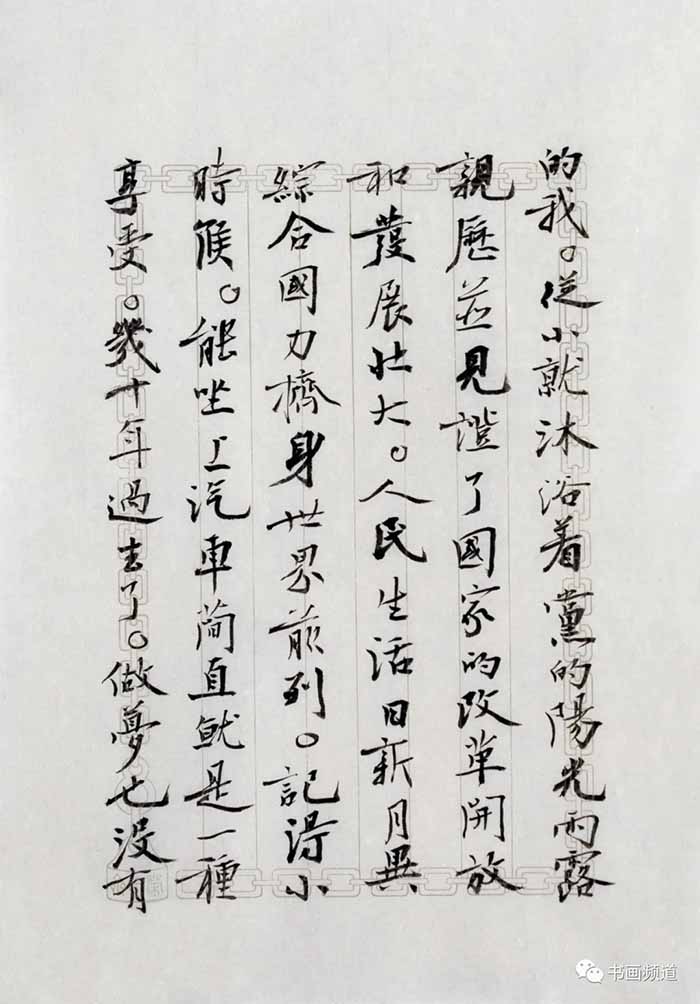 的我。從小就沐浴着黨的陽光雨露
親歷並見證了國家的改革開放
和發展壯大。人民生活日新月異
綜合國力擠身世界前列。記得小
時候。能坐上汽車簡直就是一種
享受。幾十年過去了。做夢也沒有
书画频道